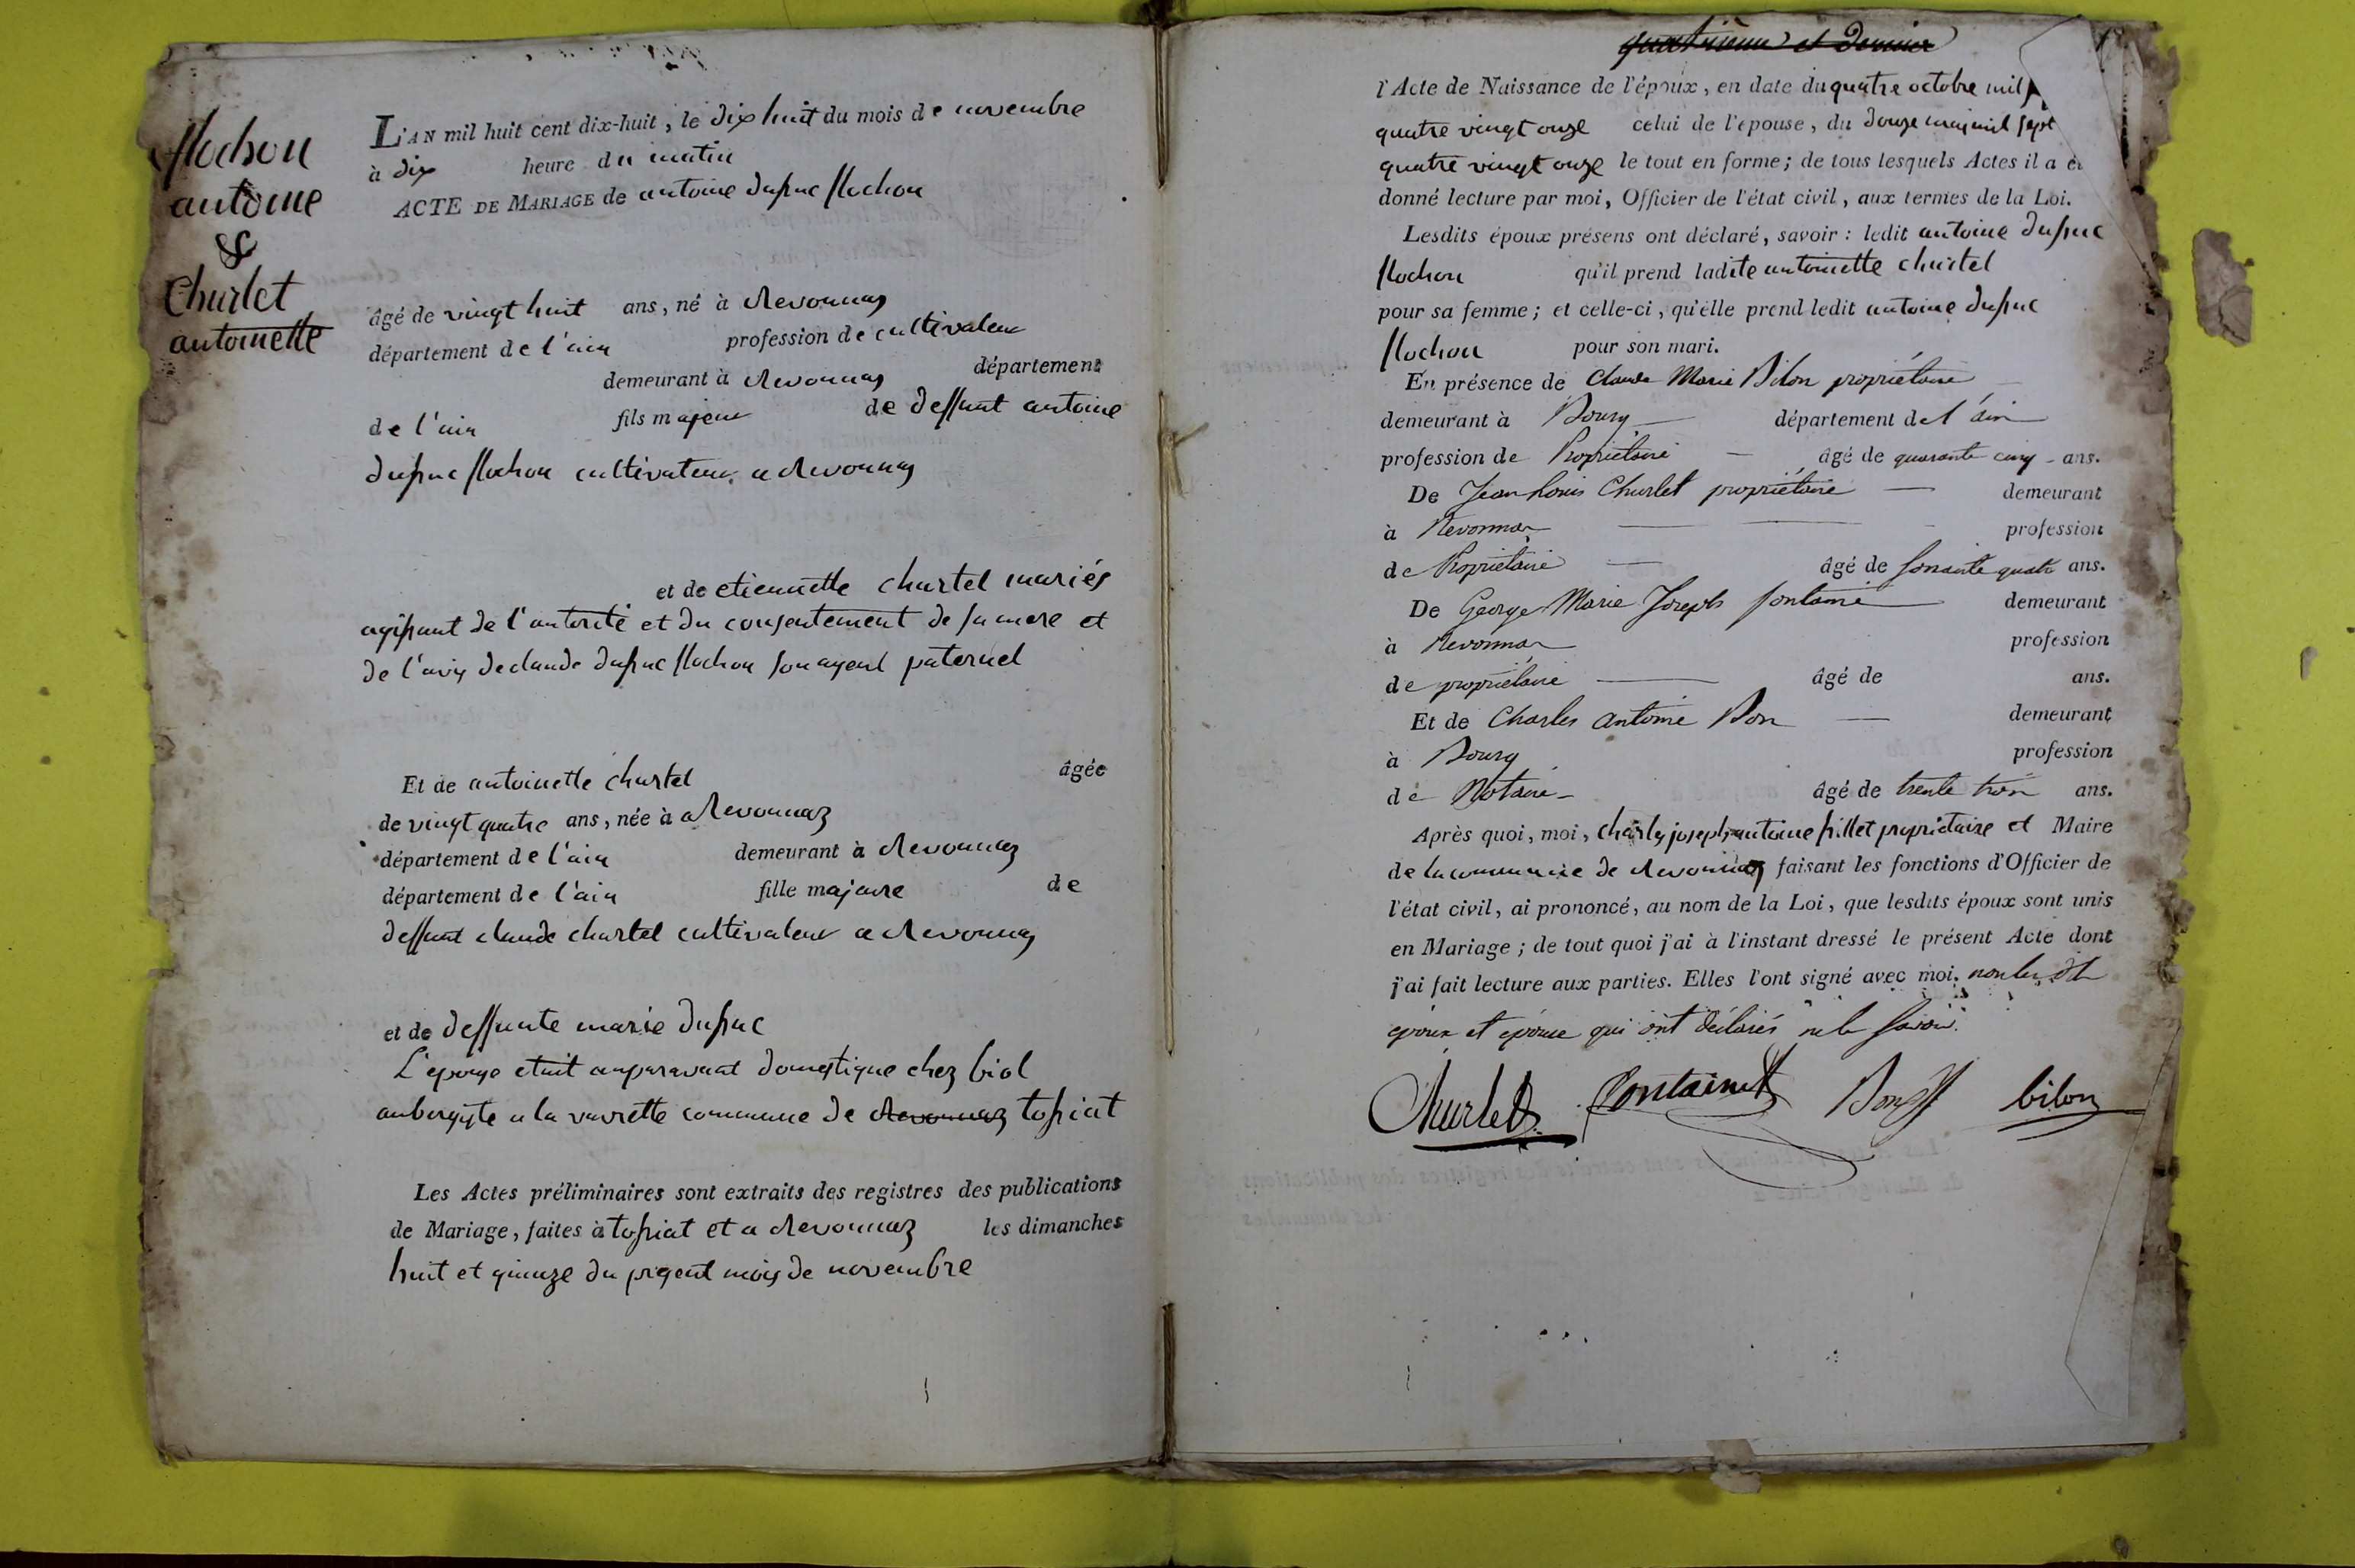 flochon
antoine
&
Churlet
antoinette
L'AN mil huit cent dix-huit, le dix huit du mois de novembre
à dix heure du matin
ACTE DE MARIAGE de antoine dupuc flochon
âgé de vingt huit ans, né à Revonnas
département de l'ain profession de cultivateur
demeurant à Revonnas département
de l'ain fils majeur de deffunt antoine
dupuc flochon cultivateur a Revonnas
et de etiennette churtel mariés
agissant de l'autorité et du consentement de sa mere et
de l'avis de claude dupuc flochon son ayeul paternel
Et de antoinette churtel âgée
de vingt quatre ans, née à Revonnaz
département de l'ain demeurant à Revonnaz
département de l'ain fille majeure de
deffunt claude churtel cultivateur a Revonnas
et de deffunte marie dupuc
L'epouse etait auparavant domestique chez biol
aubergiste a la vavrette commune de Revonnaz tossiat
Les Actes préliminaires sont extraits des registres des publications
de Mariage, faites à tossiat et a Revonnaz les dimanches
huit et quinze du present mois de novembre
quatrieme et dernier
l'Acte de Naissance de l'époux, en date du quatre octobre mil
quatre vingt onze celui de l'épouse, du douze mai mil sept
quatre vingt onze le tout en forme; de tous lesquels Actes il a
donné lecture par moi, Officier de l'état civil, aux termes de la Loi.
Lesdits époux présens ont déclaré, savoir : ledit antoine dupuc
flochon qu'il prend ladite antoinette churtel
pour sa femme; et celle-ci, qu'elle prend ledit antoine dupuc
flochon pour son mari.
En présence de Claude Marie Bilon propriétaire
demeurant à Bourg département de l'ain
profession de Propriétaire âgé de quarante cinq ans.
De Jean Louis Churlet propriétaire demeurant
à Revonnas profession
de Propriétaire âgé de soixante quatre ans.
De George Marie Joseph fontaine demeurant
à Revonnas profession
de propriétaire âgé de ans.
Et de Charles antoine Bon demeurant
à Bourg profession
de Notaire âgé de trente trois ans.
Après quoi, moi, charles joseph antoine pillet propriétaire et Maire
de la commune de Revonnas faisant les fonctions d'Officier de
l'état civil, ai prononcé, au nom de la Loi, que lesdits époux sont unis
en Mariage; de tout quoi j'ai à l'instant dressé le présent Acte dont
j'ai fait lecture aux parties. Elles l'ont signé avec moi. non les dts
epoux et epouse qui ont déclarés ne le savoir.
Churlet fontaine Bon bilon